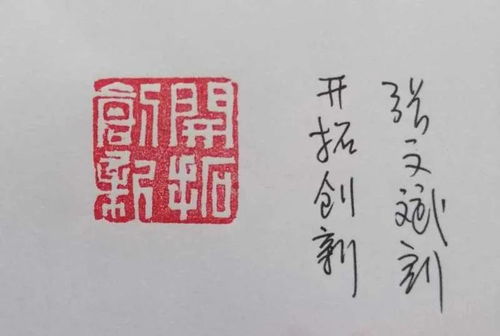 张文斌刻
开拓创新
開拓
創新